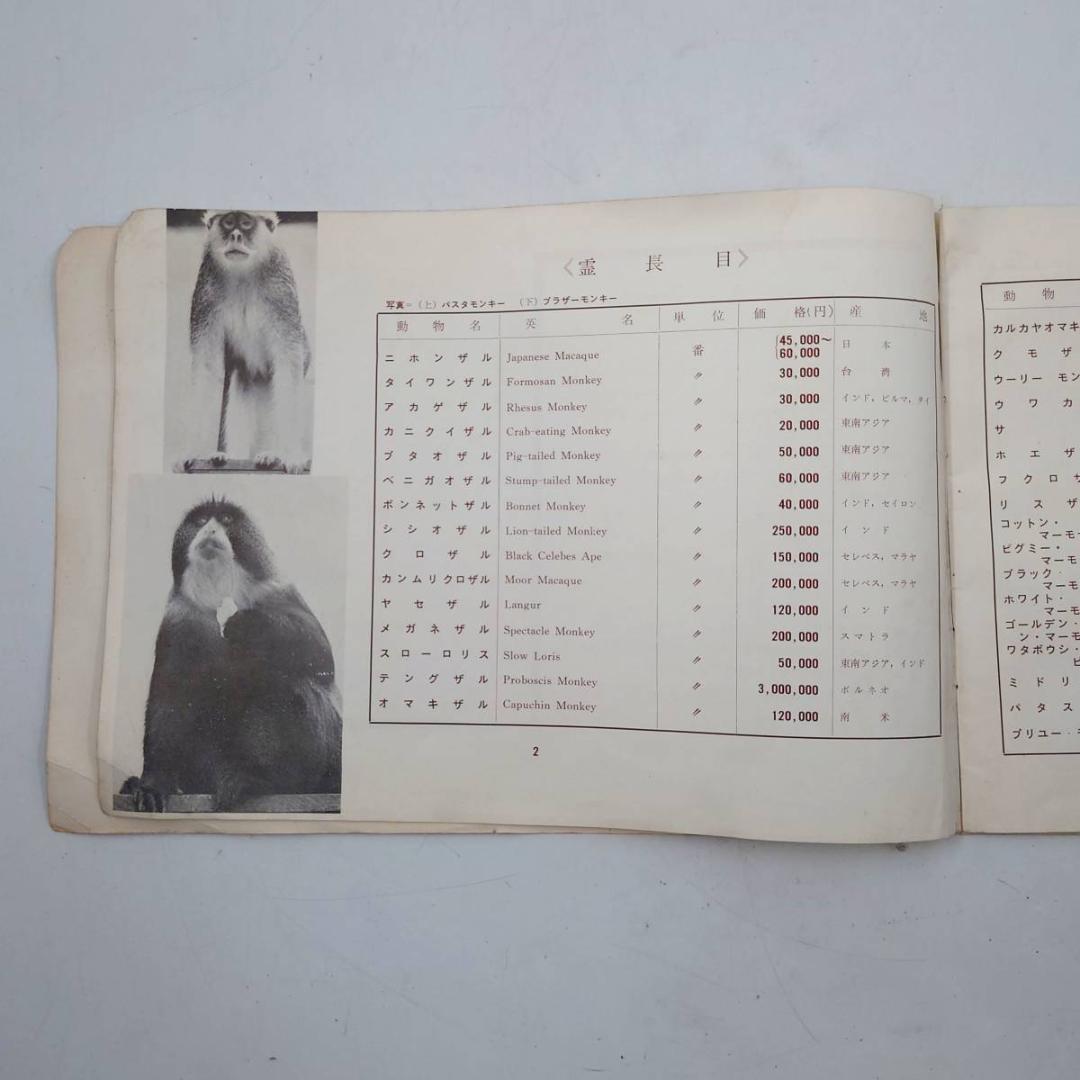 〈霊長目〉
写真=(上)パスタモンキー (下)ブラザーモンキー
動物名 英名 単位 価格(円) 産地
ニホンザル Japanese Macaque 番 45,000〜60,000 日本
タイワンザル Formosan Monkey 〃 30,000 台湾
アカゲザル Rhesus Monkey 〃 30,000 インド,ビルマ,タイ
カニクイザル Crab-eating Monkey 〃 20,000 東南アジア
ブタオザル Pig-tailed Monkey 〃 50,000 東南アジア
ベニガオザル Stump-tailed Monkey 〃 60,000 東南アジア
ボンネットザル Bonnet Monkey 〃 40,000 インド,セイロン
シシオザル Lion-tailed Monkey 〃 250,000 インド
クロザル Black Celebes Ape 〃 150,000 セレベス,マラヤ
カンムリクロザル Moor Macaque 〃 200,000 セレベス,マラヤ
ヤセザル Langur 〃 120,000 インド
メガネザル Spectacle Monkey 〃 200,000 スマトラ
スローロリス Slow Loris 〃 50,000 東南アジア,インド
テングザル Proboscis Monkey 〃 3,000,000 ボルネオ
オマキザル Capuchin Monkey 〃 120,000 南米
2
動物
カルカヤオマキ
クモザ
ウーリーモン
ウワカ
サ
ホエザ
フクロザ
リスザ
コットン・
マーモ
ピグミー・
マーモ
ブラック・
マーモ
ホワイト・
マーモ
ゴールデン・
ン・マーモ
ワタボウシ・
ミドリ
パタス
ブリュー・